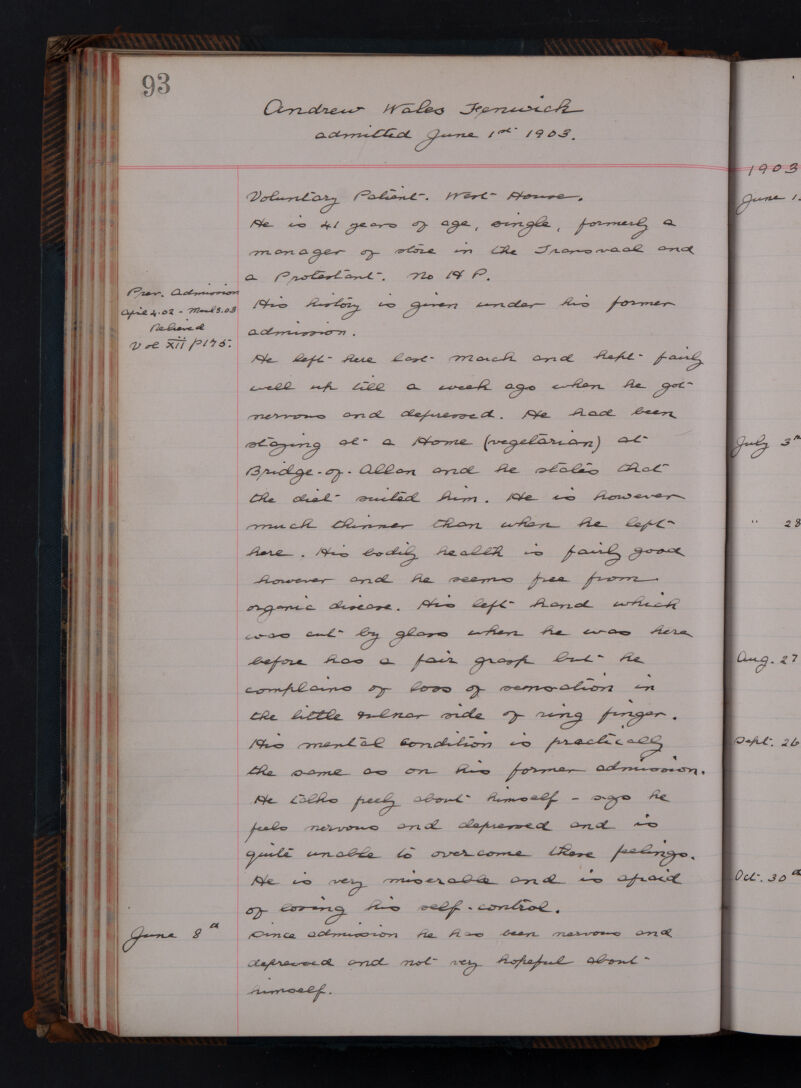 93
Andrew Wales Fenwick
admitted June 1st 1903.
Voluntary Patient. West House.
He is 41 years of age, single, formerly a
manager of store in the Transvaal and
a Protestant. No H P.
Prev. Admission
April 4.02 - March 5.03
Relieved
Vol XII P175.
His history is given under his former
admission.
He left here last March and kept fairly
well up till a week ago when he got
nervous and depressed. He had been
staying at a Home (vegetarian) at
Bridge-of-Allan and he states that
the diet suited him. He is however
much thinner than when he left
here. His bodily health is fairly good
however and he seems free from
organic disease. His left hand which
was cut by glass when he was here
before has a fair grasp but he
complains of loss of sensation in
the little ulnar side of ring finger.
His mental condition is practically
the same as on his former admission.
He talks freely about himself - says he
feels nervous and depressed and is
quite unable to overcome these feelings.
He is very miserable and is afraid
of losing his self-control.
June 8th
Since admission he has been nervous and
depressed and not very hopeful about
himself.
1903
June 1
July 3rd
" 28
Aug. 27
Sept. 26
Oct. 30th